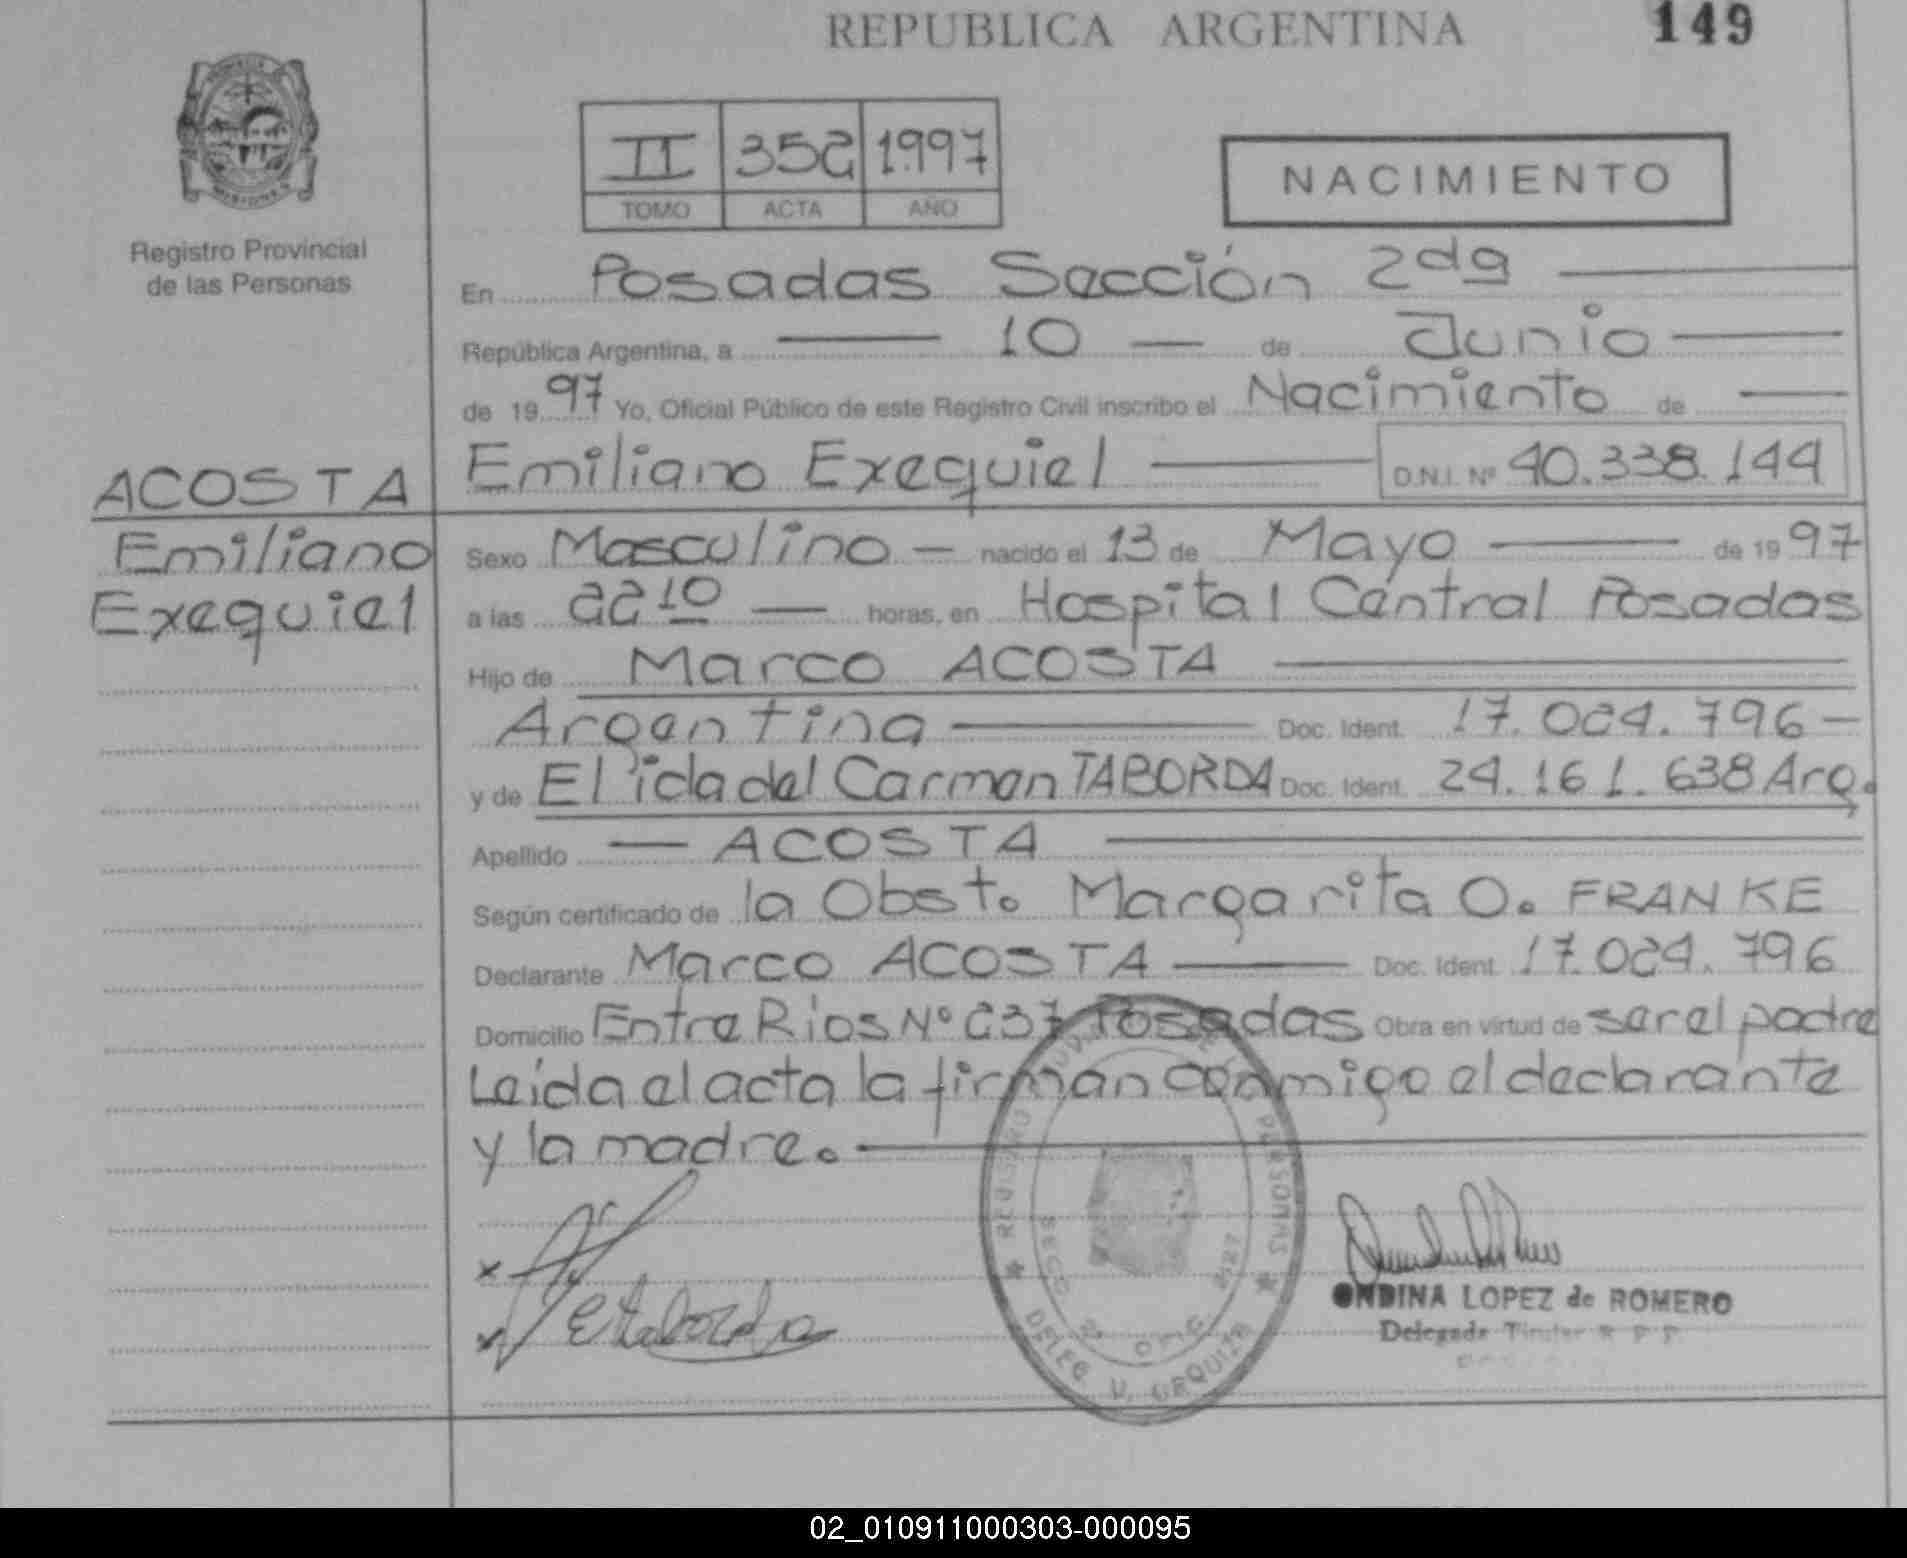 REPUBLICA ARGENTINA 149
II 352 1997
TOMO ACTA AÑO
NACIMIENTO
Registro Provincial
de las Personas
En Posadas Sección 2da
República Argentina, a 10 de Junio
de 1997 Yo, Oficial Público de este Registro Civil inscribo el Nacimiento de
Emiliano Exequiel D.N.I. Nº 40.338.144
ACOSTA
Emiliano
Exequiel
Sexo Masculino nacido el 13 de Mayo de 1997
a las 22 10 horas, en Hospital Central Posadas
Hijo de Marco ACOSTA
Argentina Doc. Ident. 17.024.796
y de Elida del Carmen TABORDA Doc. Ident. 24.161.638 Arg.
Apellido ACOSTA
Según certificado de la Obst. Margarita O. FRANKE
Declarante Marco ACOSTA Doc. Ident. 17.024.796
Domicilio Entre Ríos Nº 237 Posadas Obra en virtud de ser el padre
Leída el acta la firman conmigo el declarante
y la madre.
E Taborda
DELEG V. URQUIZA
ONDINA LOPEZ de ROMERO
Delegada Titular R P P
02_010911000303-000095